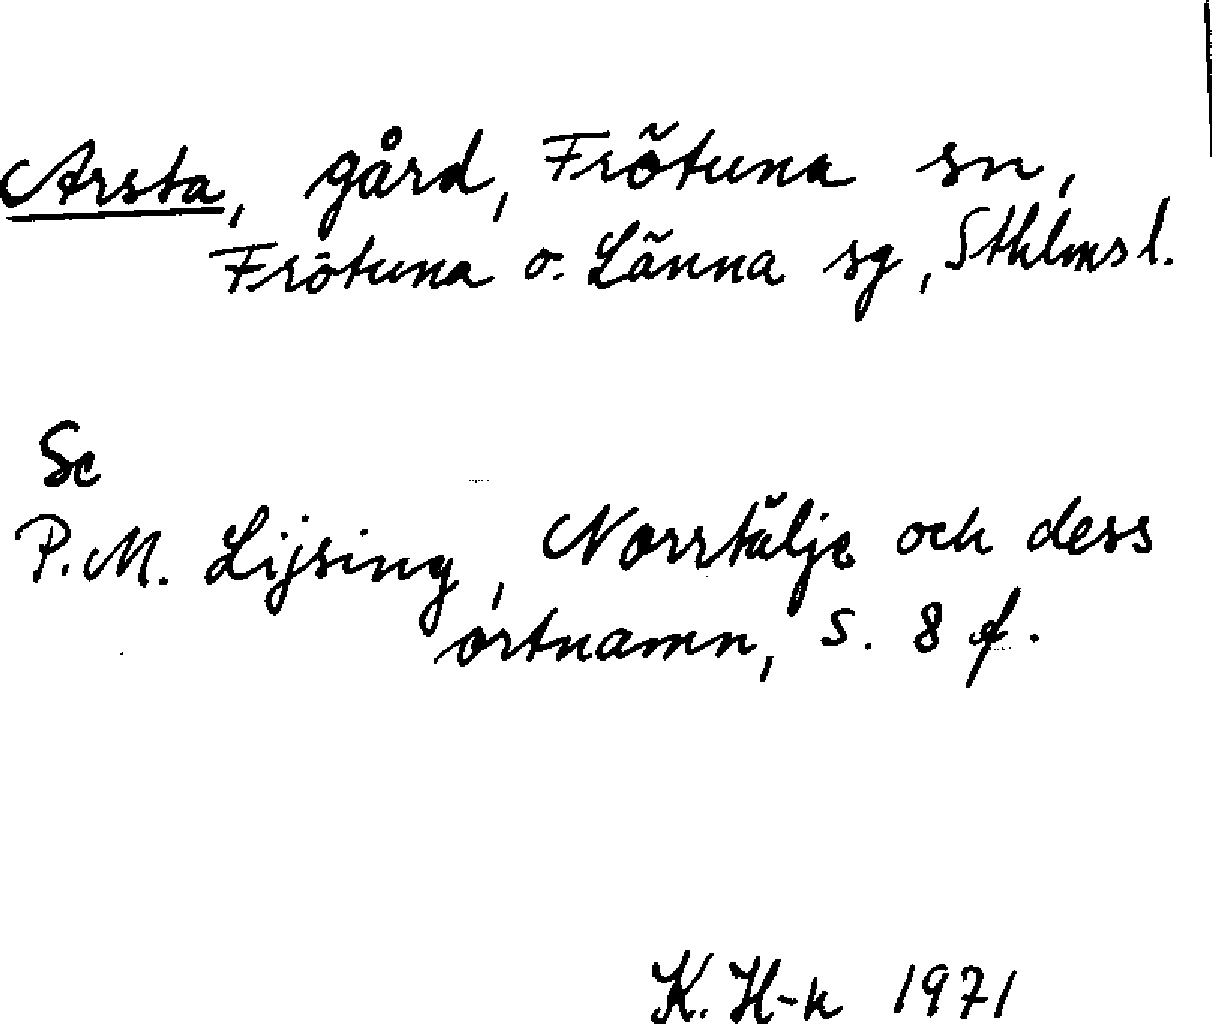 Arsta, gård, Frötuna sn,
Frötuna o. Länna sg, Sthlms l.
Se
P. M. Lijsing, Norrtälje och dess
ortnamn, s. 8 f.
K. H-k 1971